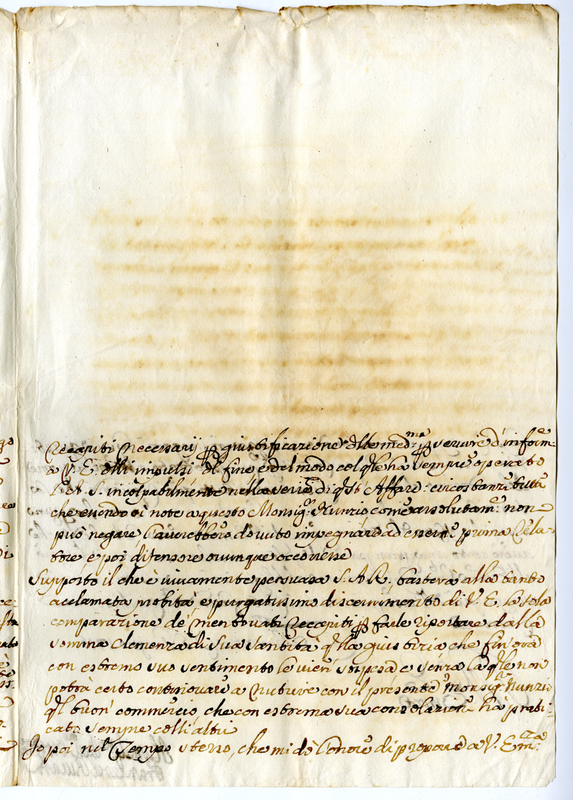 Recapiti necessarij p giustificazione delle med.me p servire d'inform.e
a V. E. delli impulsi del fine e del modo col qle ha sempre operato
S. incolpabilmente nella serie di qsto Affare: circostanze tutte
che essendo sì note a questo Monsig.r Nunzio come assolutam.e non
può negare l'averebbero dovuto impegnare ad esserne prima Rela-
tore e poi difensore ovunque occorresse
Supposto il che è vivamente persuasa S. A. R. basterà alla tanto
acclamata probità e purgatissimo discernimento di V. E. la sola
comparazione de mentovati Recapiti p farle riportare dalla
somma Clemenza di Sua Santità qlla giustizia che fin ora
con estremo suo sentimento le vien sospesa e senza la qle non
potrà certo continovare a nutrire con il presente Monsig.r Nunzio
ql buon commercio che con estrema sua consolazion.e ha prati-
cato sempre colli altri
Io poi nel tempo stesso, che mi dò l'onore di preparare a V. Em.za